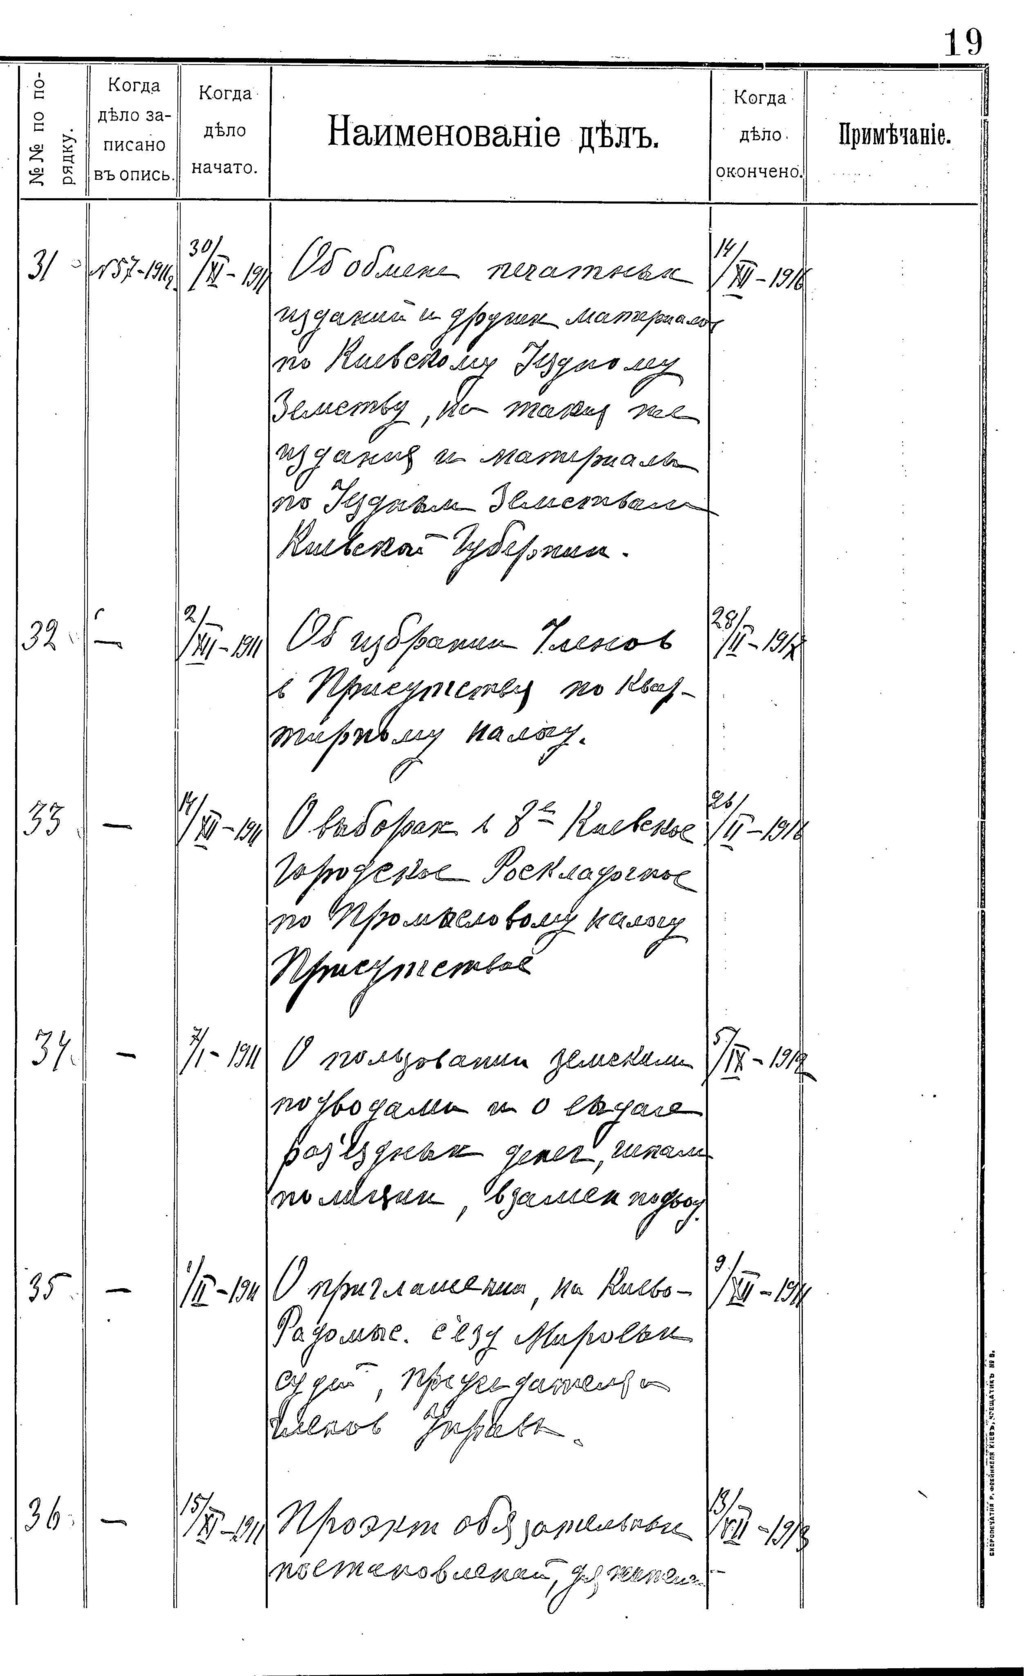 19
№№ по по-
рядку.
Когда
дѣло за-
писано
въ опись.
Когда
дѣло
начато.
Наименованіе дѣлъ.
Когда
дѣло
окончено.
Примѣчаніе.
31 №57-1911г. 30/XI-1911 Об обмене печатных 14/XII-1916
изданий и других материалов
по Киевскому Уездному
Земству, на такия же
издания и материалы
по Уездным Земствам
Киевской Губернии.
32 — 2/XII-1911 Об избрании Членов 28/II-1917
в Присутствия по Квар-
тирному налогу.
33 — 14/XII-1911 О выборах в 8е Киевское 26/II-1916
Городское Роскладочное
по Промысловому налогу
Присутствие
34 — 7/I-1911 О пользовании земскими 5/IX-1912
подводами и о выдаче
раз'ездных денег, чинам
полиции, взамен подвод.
35 — 1/II-1911 О приглашении, на Киево- 9/XII-1911
Радомыс. с'езд Мировых
судей, председателя и
членов Управы.
36 — 15/XI-1911 Проэкт обязательных 13/VII-1913
постановлений, для
СКОРОПЕЧАТНЯ Р. ФРЕЙНКЕЛЯ КІЕВЪ, КРЕЩАТИКЪ № 8.